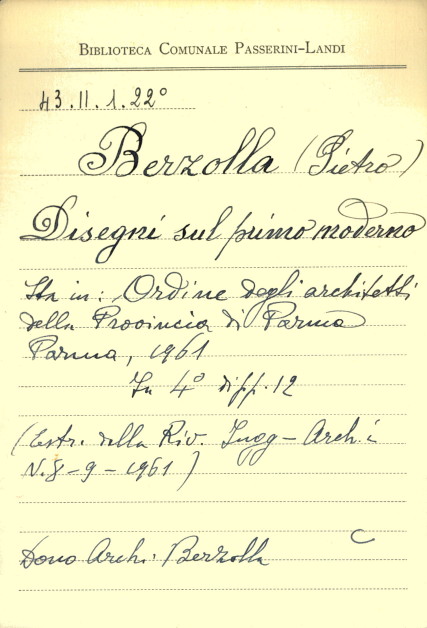 BIBLIOTECA COMUNALE PASSERINI-LANDI
43.II.1.22°
Berzolla (Pietro)
Disegni sul primo moderno
Sta in: Ordine degli architetti
della Provincia di Parma
Parma, 1961
In 4° di pp. 12
(Estr. della Riv. Ingg - Arch.i
N. 8-9-1961)
C
Dono Arch. Berzolla